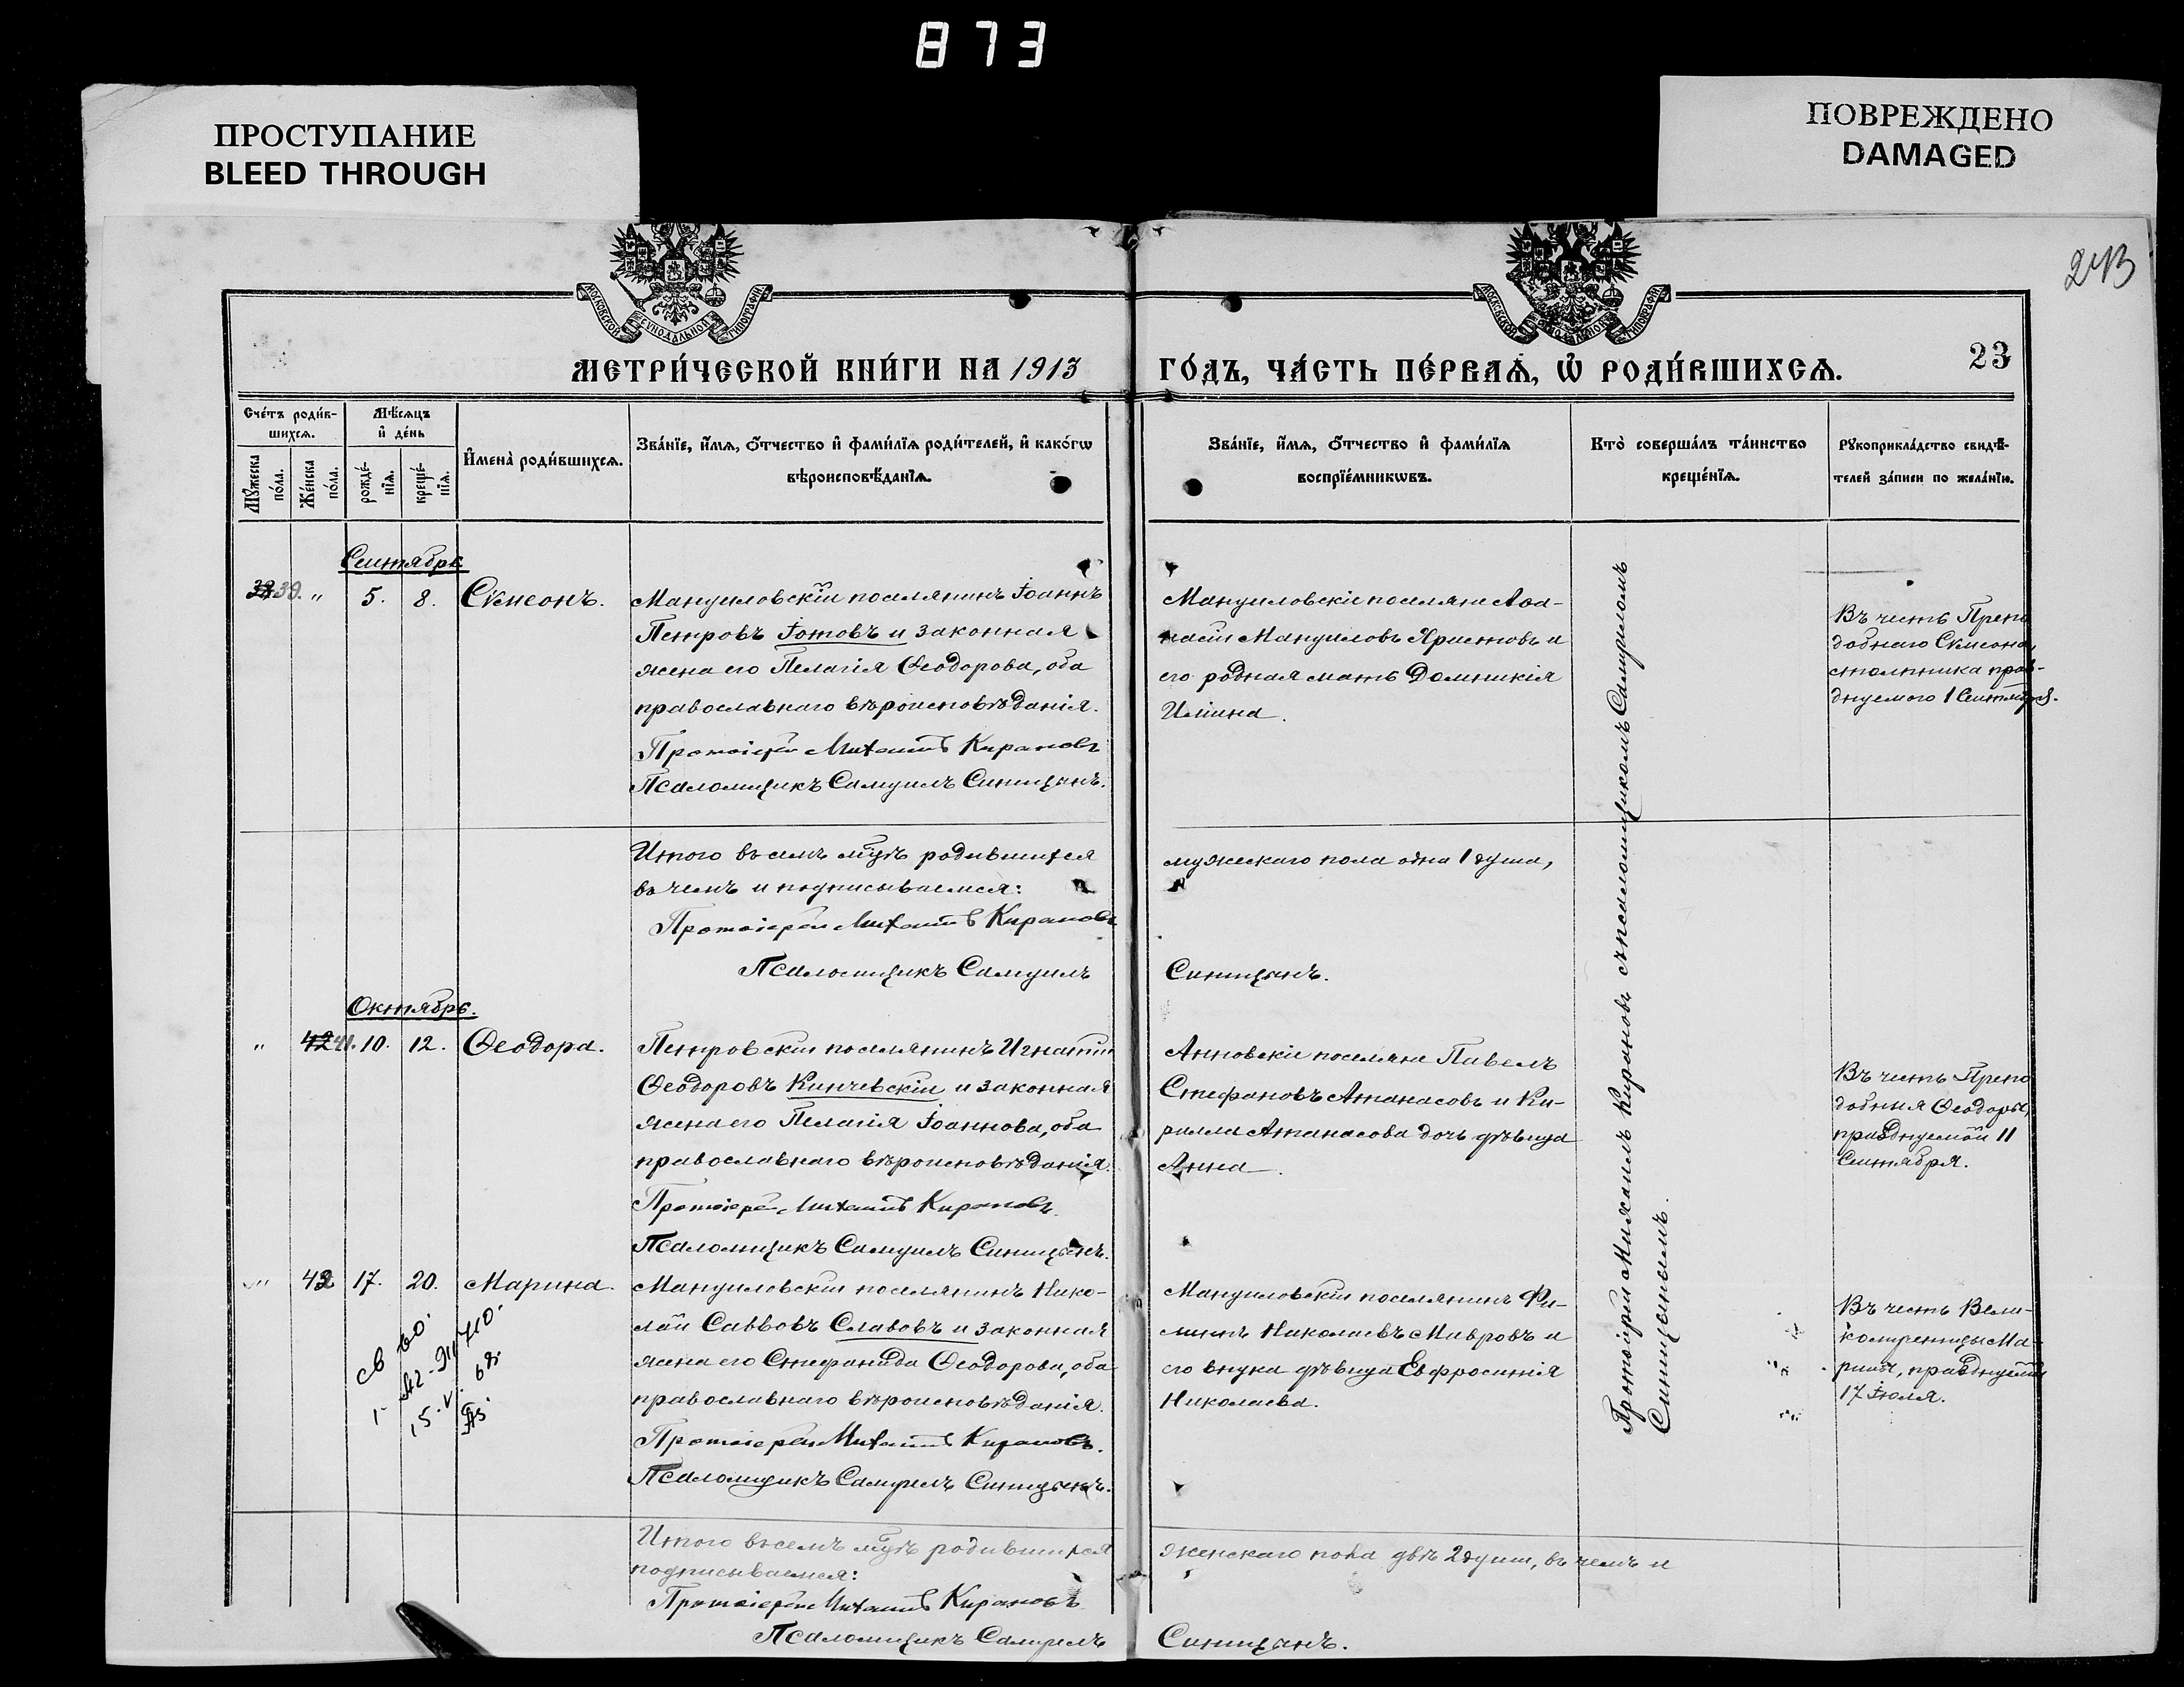 873
ПРОСТУПАНИЕ
BLEED THROUGH
ПОВРЕЖДЕНО
DAMAGED
МОСКОВСКОЙ СѴНОДАЛЬНОЙ ТИПОГРАФІИ
МОСКОВСКОЙ СѴНОДАЛЬНОЙ ТИПОГРАФІИ
МЕТРИ́ЧЕСКОЙ КНИ́ГИ НА 1913
ГО́ДЪ, ЧА́СТЬ ПЕ́РВАѦ, Ѡ҆ РОДИ́ВШИХСѦ.
23
Сче́тъ роди́в-
шихсѧ.
Мѣ́сѧцъ
и҆ де́нь
Мꙋ́жеска
по́ла.
Же́нска
по́ла.
рожде́-
нїѧ.
креще́-
нїѧ.
И҆мена̀ роди́вшихсѧ.
Зва́нїе, и҆́мѧ, ѻ҆́тчество и҆ фами́лїѧ роди́телей, и҆ како́гѡ
вѣроисповѣ́данїѧ.
Зва́нїе, и҆́мѧ, ѻ҆́тчество и҆ фами́лїѧ
воспрїе́мникѡвъ.
Кто̀ соверша́лъ та́инство
креще́нїѧ.
Рꙋкоприкла́дство свидѣ́-
телей за́писи по жела́нїю.
Сентябрь
39. " 5. 8. Сѵмеонъ.
Мануиловскій поселянинъ Іоаннъ
Петровъ Іотовъ и законная
жена его Пелагія Ѳеодорова, оба
православнаго вѣроисповѣданія.
Протоіерей Михаилъ Кирановъ
Псаломщикъ Самуилъ Синицынъ.
Мануиловскіе поселяне Аѳа-
насій Мануиловъ Яристовъ и
его родная мать Домникія
Иліина.
Въ честь Препо
добнаго Сѵмеона
столпника праз-
днуемого 1 Сентября.
Протоіерей Михаилъ Кирановъ съ псаломщикомъ Самуиломъ
Синицынымъ.
Итого въ семъ м-цѣ родившихся
мужескаго пола одна 1 душа,
въ чемъ и подписываемся:
Протоіерей Михаилъ Кирановъ
Псаломщикъ Самуилъ
Синицынъ.
Октябрь.
" 42 41. 10. 12. Ѳеодора.
Петровскій поселянинъ Игнатій
Ѳеодоровъ Кинчевскій и законная
жена его Пелагія Іоаннова, оба
православнаго вѣроисповѣданія.
Протоіерей Михаилъ Кирановъ.
Псаломщикъ Самуилъ Синицынъ.
Анновскіе поселяне Павелъ
Стефановъ Атанасовъ и Ки-
рилла Атанасова дочь дѣвица
Анна.
Въ честь Препо
добныя Ѳеодоры,
празднуемой 11
Сентября.
" 42 17. 20. Марина.
Мануиловскій поселянинъ Нико-
лай Саввовъ Славовъ и законная
жена его Стефанида Ѳеодорова, оба
православнаго вѣроисповѣданія.
Протоіерей Михаилъ Кирановъ.
Псаломщикъ Самуилъ Синицынъ.
Мануиловскій поселянинъ Фи-
липпъ Николаевъ Мавровъ и
его внука дѣвица Евфросинія
Николаева.
Въ честь Вели-
комученицы Ма-
рины, празднуемой
17 Іюля.
Итого въ семъ м-цѣ родившихся
женскаго пола двѣ 2 души, въ чемъ и
подписываемся:
Протоіерей Михаилъ Кирановъ
Псаломщикъ Самуилъ
Синицынъ.